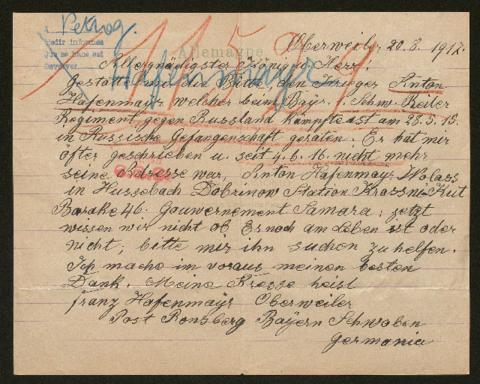 Petrog.
Pedir informes
Que se hace así
Devolver
Allemagne
Hafenmayr
Oberweil, 20.8.1917.
Allergnädigster König u. Herr!
Gestatte mir die Bitte, den Krieger Anton
Hafenmayr welcher beim Bayr. 1. Schw. Reiter
Regiment gegen Russland kämpfte ast am 28.5.15.
in Russische Gefangenschaft geraten. Er hat mir
öfter geschrieben u. seit 4.6.16. nicht mehr
seine Adresse war, Anton Hafenmayr Wolass
in Hussobach Dobrinow Station Krassni Kut
Barake 46. Gouvernement Samara; jetzt
wissen wir nicht ob Er noch am Leben ist oder
nicht, bitte mir ihn suchen zu helfen.
Ich mache im voraus meinen besten
Dank. Meine Adresse heist
Franz Hafenmayr Oberweiler
Post Ronsberg Bayern Schwaben
Germania